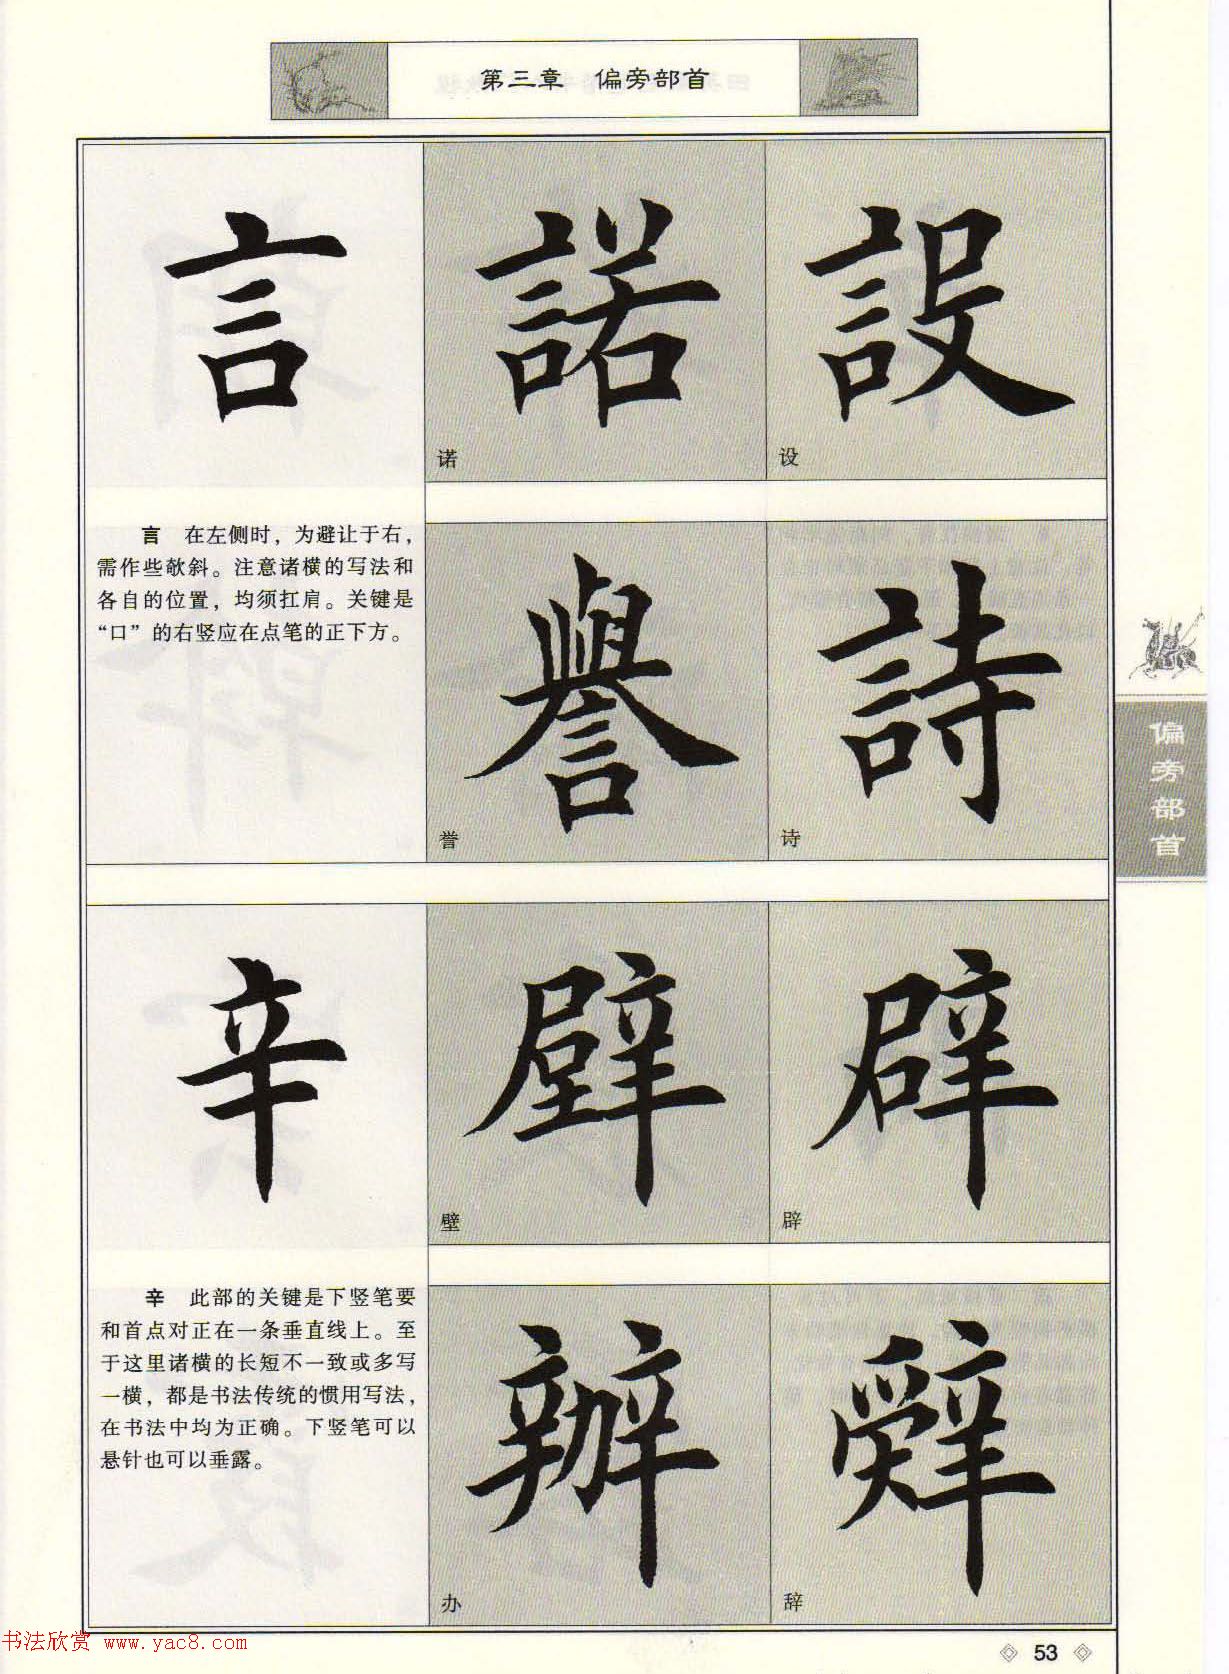 第三章 偏旁部首
言
諾
設
诺
设
言 在左侧时，为避让于右，
需作些欹斜。注意诸横的写法和
各自的位置，均须扛肩。关键是
“口”的右竖应在点笔的正下方。
譽
詩
誉
诗
偏旁部首
辛
壁
辟
壁
辟
辛 此部的关键是下竖笔要
和首点对正在一条垂直线上。至
于这里诸横的长短不一致或多写
一横，都是书法传统的惯用写法，
在书法中均为正确。下竖笔可以
悬针也可以垂露。
辦
辭
办
辞
书法欣赏 www.yac8.com
53